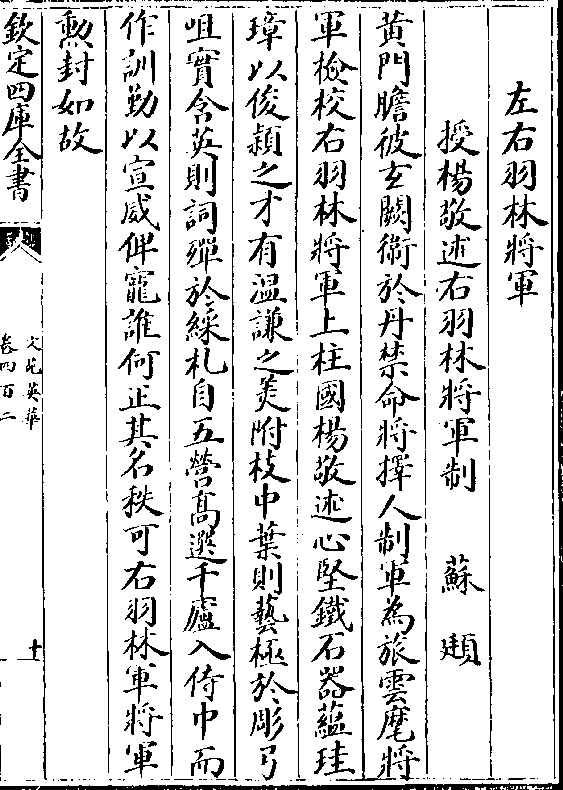 左右羽林將軍
授楊敬述右羽林將軍制　蘇頲
黄門膽彼玄闕衛於丹禁命將擇人制軍為旅雲麾將
軍檢校右羽林將軍上柱國楊敬述心堅鐵石器藴珪
璋以俊穎之才有温謙之美附枝中葉則藝極於彫弓
咀實含英則詞殫於綵札自五營髙選千廬入侍巾而
作訓勤以宣威俾寵誰何正其名秩可右羽林軍將軍
勲封如故
欽定四庫全書
文苑英華
卷四百二
十